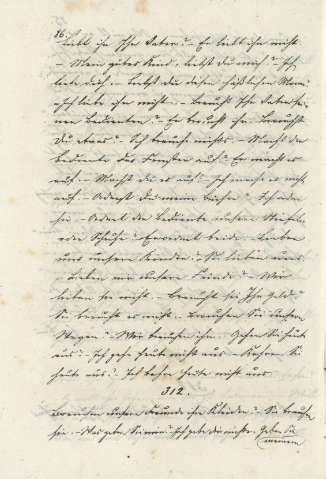 86.
Liebt ihn Ihr Vater? – Er liebt ihn nicht
– Mein gutes Kind, liebst du mich? – Ich
liebe dich. – Liebst du diesen häßlichen Mann
– Ich liebe ihn nicht. – Braucht Ihr Vater sei-
nen Bedienten? – Er braucht ihn. Brauchst
Du etwas? – Ich brauche nichts. – Macht der
Bediente das Fenster auf? – Er macht es
auf. – Machst du es auf? – Ich mache es nicht
auf. – Ordnest Du meine Bücher? – Ich ordne
sie. – Ordnet der Bediente unsere Stiefeln
oder Schuhe? – Er ordnet beide. – Lieben
uns unsere Kinder? – Sie lieben uns.
– Lieben wir unsere Feinde? – Wir
lieben sie nicht. – Braucht sie Ihr Geld? –
Sie braucht es nicht. – Brauchen Sie Ihren
Wagen? – Wir brauchen ihn. – Gehen Sie heute
aus? – Ich gehe heute nicht aus. – Kehren Sie
heute aus? – Ich kehre heute nicht aus.
312.
Brauchen unsere Freunde ihre Kleider? – Sie brauchen
sie. – Was geben Sie mir? – Ich gebe dir nichts. – Geben Sie
meinem